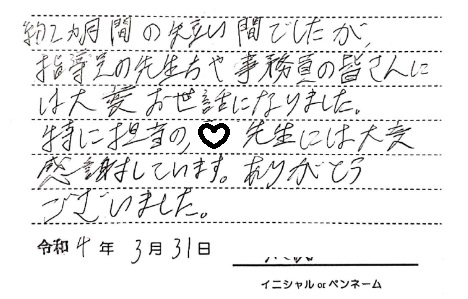 約2カ月間の短い間でしたが、
指導員の先生方や事務員の皆さんに
は大変お世話になりました。
特に担当の、♥先生には大変
感謝しています。ありがとう
ございました。
令和4年3月31日
イニシャルorペンネーム